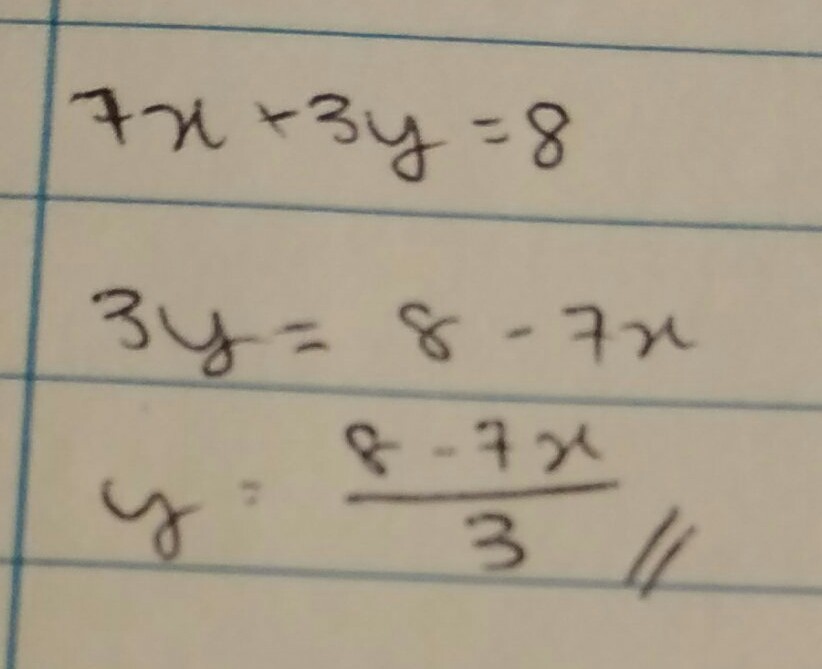 7x + 3y = 8
3y = 8 - 7x
y = (8 - 7x)/3 //